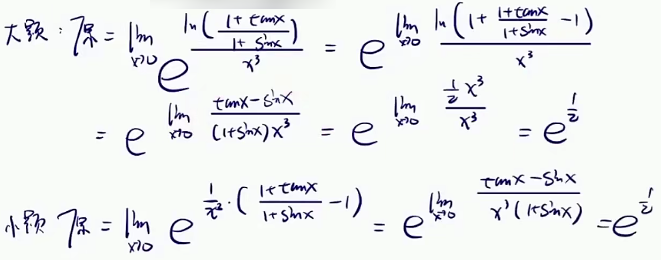 大题：原 = lim_{x→0} e^{ln((1+tanx)/(1+sinx))/x³} = e^{lim_{x→0} ln(1+(1+tanx)/(1+sinx)-1)/x³}
= e^{lim_{x→0} (tanx-sinx)/((1+sinx)x³)} = e^{lim_{x→0} (½x³)/x³} = e^{1/2}
小题 原 = lim_{x→0} e^{1/x³·((1+tanx)/(1+sinx)-1)} = e^{lim_{x→0} (tanx-sinx)/(x³(1+sinx))} = e^{1/2}